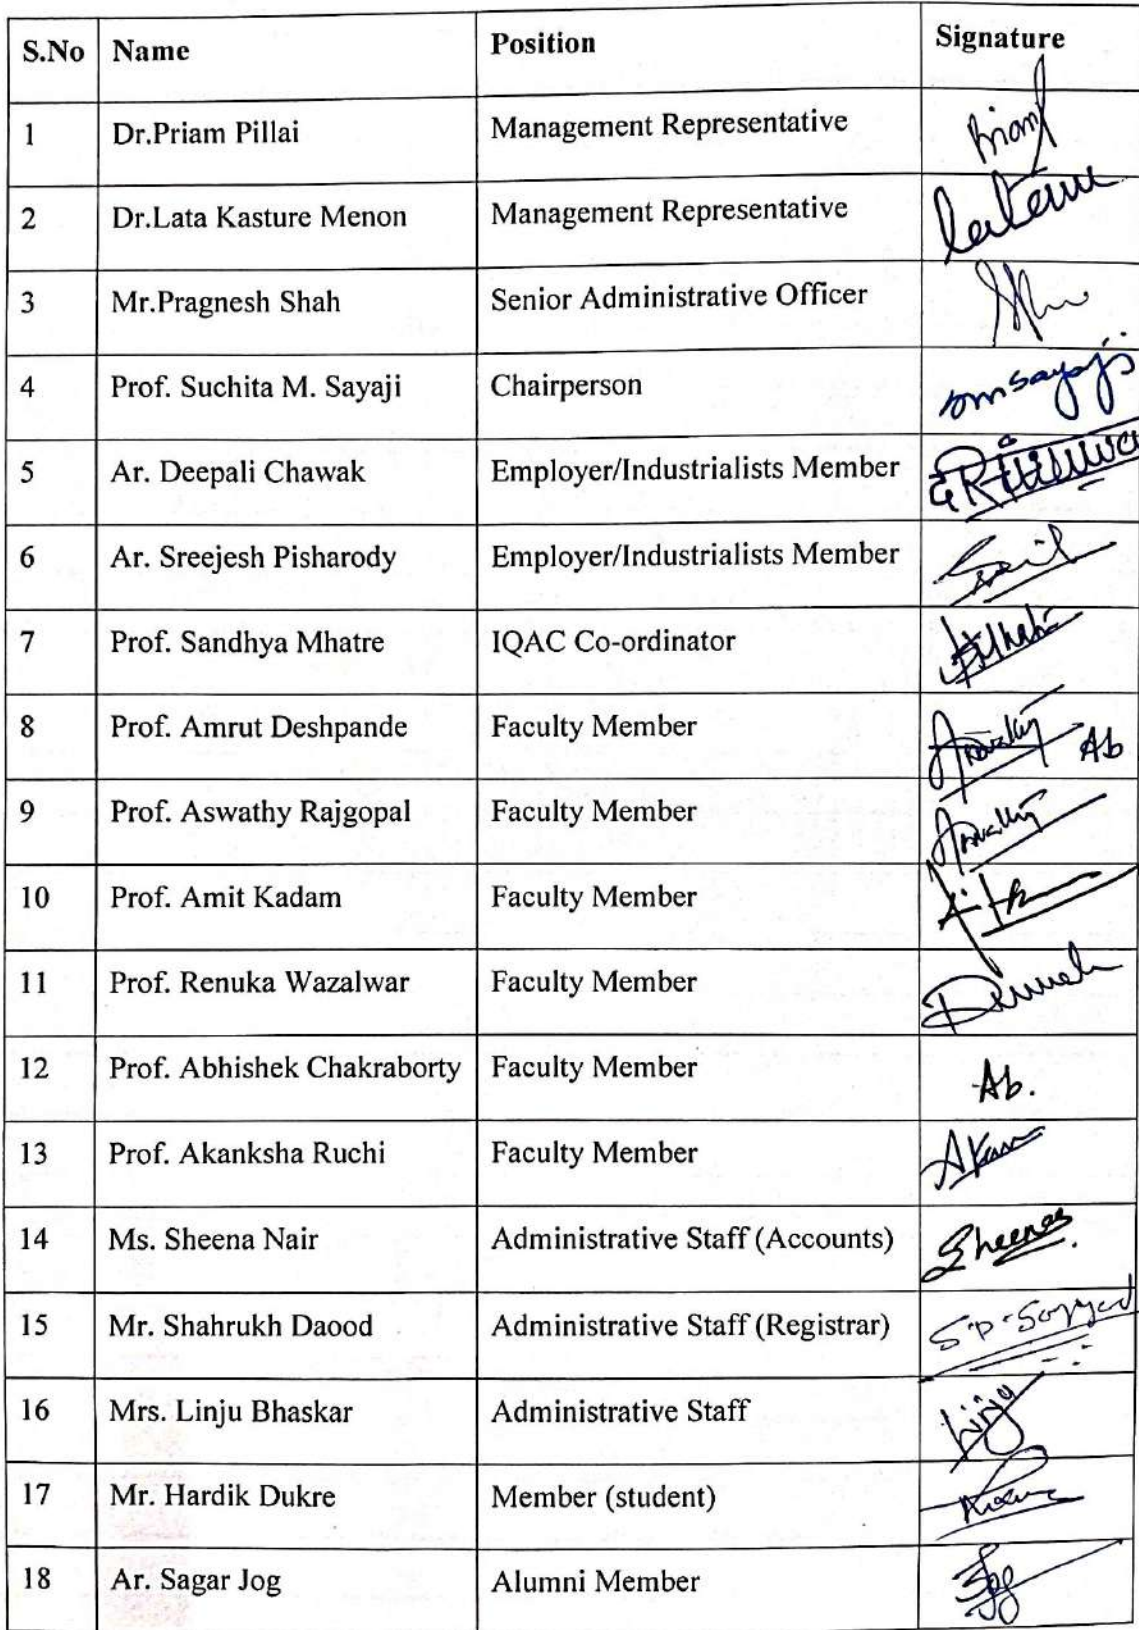 S.No Name Position Signature
1 Dr.Priam Pillai Management Representative
2 Dr.Lata Kasture Menon Management Representative
3 Mr.Pragnesh Shah Senior Administrative Officer
4 Prof. Suchita M. Sayaji Chairperson smsayaji
5 Ar. Deepali Chawak Employer/Industrialists Member
6 Ar. Sreejesh Pisharody Employer/Industrialists Member
7 Prof. Sandhya Mhatre IQAC Co-ordinator
8 Prof. Amrut Deshpande Faculty Member Ab
9 Prof. Aswathy Rajgopal Faculty Member
10 Prof. Amit Kadam Faculty Member
11 Prof. Renuka Wazalwar Faculty Member
12 Prof. Abhishek Chakraborty Faculty Member Ab.
13 Prof. Akanksha Ruchi Faculty Member
14 Ms. Sheena Nair Administrative Staff (Accounts)
15 Mr. Shahrukh Daood Administrative Staff (Registrar)
16 Mrs. Linju Bhaskar Administrative Staff
17 Mr. Hardik Dukre Member (student)
18 Ar. Sagar Jog Alumni Member